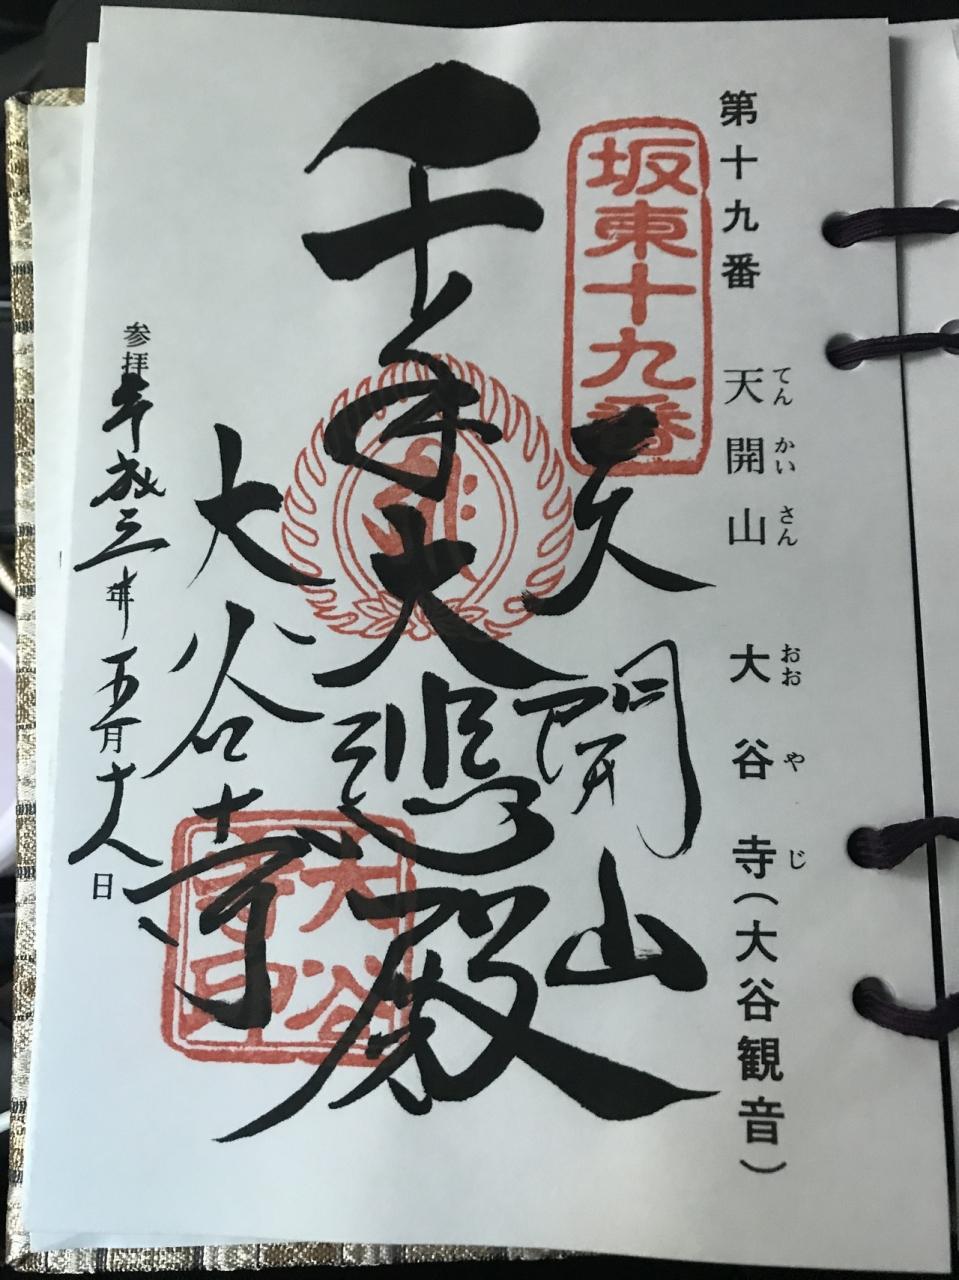 第十九番　天開山　大谷寺（大谷観音）
てん　かい　さん　おお　や　じ
坂東十九番
天開山
千手大悲殿
大谷寺
大谷
寺印
参拝平成三十年五月十八日